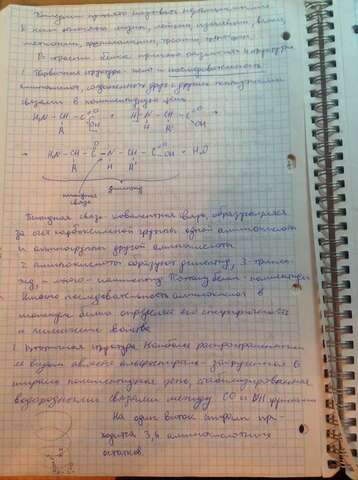 которые принято называть незаменимыми.
К ним относятся лизин, лейцин, изолейцин, валин,
метионин, фенилаланин, треонин, триптофан.
В строении белка принято различать 4 структуры
1. Первичная структура - число и последовательность
аминокислот, соединенных друг с другом пептидными
связями в полипептидную цепь.
H₂N - CH - C + H - N - CH - C →
O OH R H R O OH
→ H₂N - CH - C - N - CH - C - OH + H₂O
R O H R O
пептидная
связь
дипептид
Пептидная связь - ковалентная связь, образующаяся
за счет карбоксильной группы одной аминокислоты
и аминогруппы другой аминокислоты
2 аминокислоты образуют дипептид, 3 - трипеп-
тид, много - полипептид. Поэтому белок - полипептид.
Именно последовательность аминокислот в
молекуле белка определяет его специфичность
и химические свойства
2. Вторичная структура. Наиболее распространенным
ее видом является альфа-спираль - закрученная в
спираль полипептидная цепь, стабилизированная
водородными связями между CO и NH группами
На один виток спирали при-
ходится 3,6 аминокислотных
остатков.